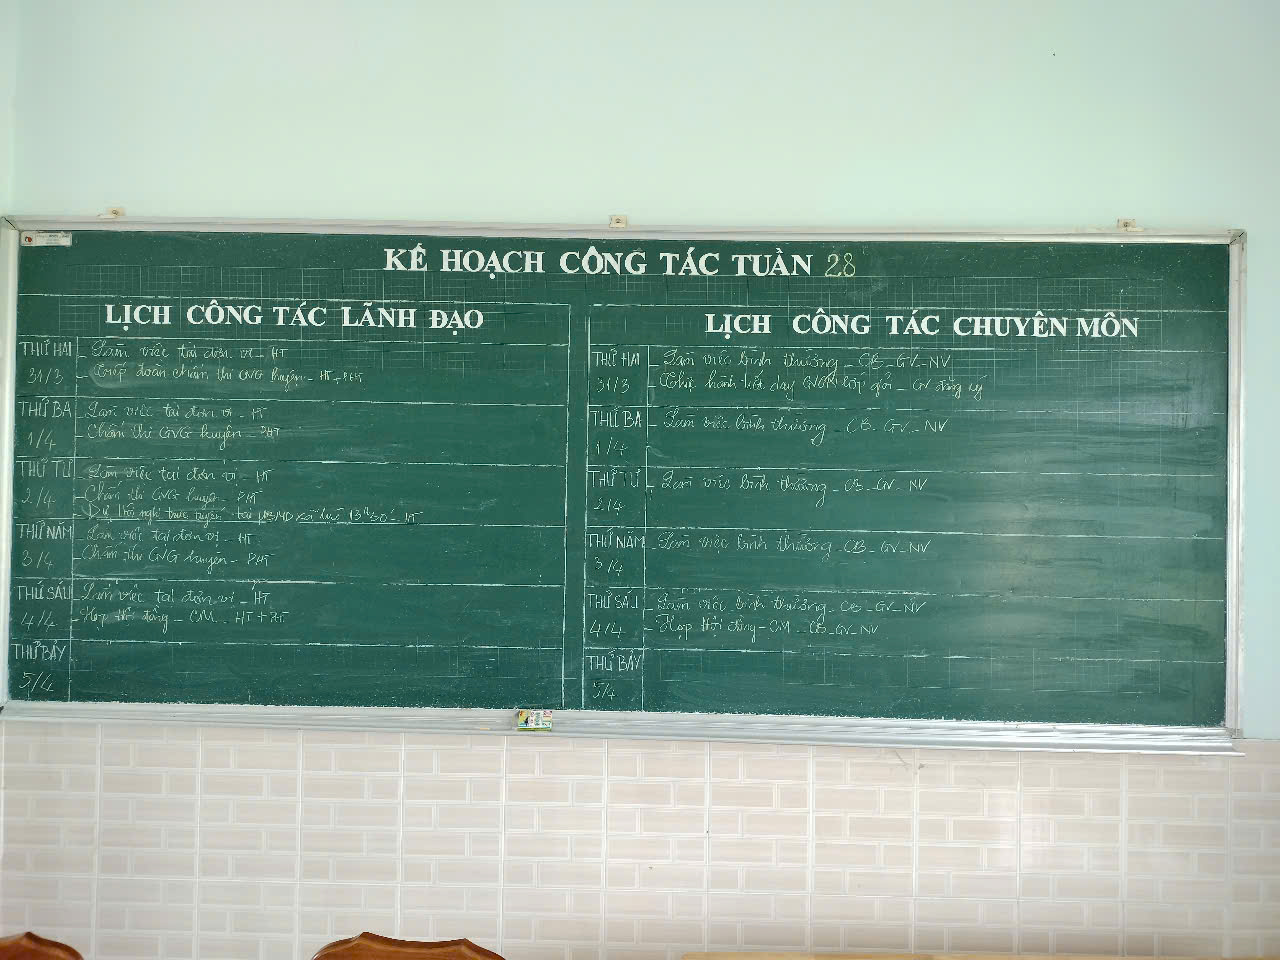 KẾ HOẠCH CÔNG TÁC TUẦN 28
LỊCH CÔNG TÁC LÃNH ĐẠO
THỨ HAI
31/3
- Làm việc tại đơn vị - HT
- Tiếp đoàn chấm thi GVG huyện - HT + PHT
THỨ BA
1/4
- Làm việc tại đơn vị - HT
- Chấm thi GVG huyện - PHT
THỨ TƯ
2/4
- Làm việc tại đơn vị - HT
- Chấm thi GVG huyện - PHT
- Dự hội nghị trực tuyến tại xã lúc - HT
THỨ NĂM
3/4
- Làm việc tại đơn vị - HT
- Chấm thi GVG huyện - PHT
THỨ SÁU
4/4
- Làm việc tại đơn vị - HT
- Họp Hội đồng - CM - HT + PHT
THỨ BẢY
5/4
LỊCH CÔNG TÁC CHUYÊN MÔN
THỨ HAI
31/3
- Làm việc bình thường - CB - GV - NV
- Thực hành tiết dạy giỏi - GV đăng ký
THỨ BA
1/4
- Làm việc bình thường - CB - GV - NV
THỨ TƯ
2/4
- Làm việc bình thường - CB - GV - NV
THỨ NĂM
3/4
- Làm việc bình thường - CB - GV - NV
THỨ SÁU
4/4
- Làm việc bình thường - CB - GV - NV
- Họp Hội đồng - CM - CB - GV - NV
THỨ BẢY
5/4